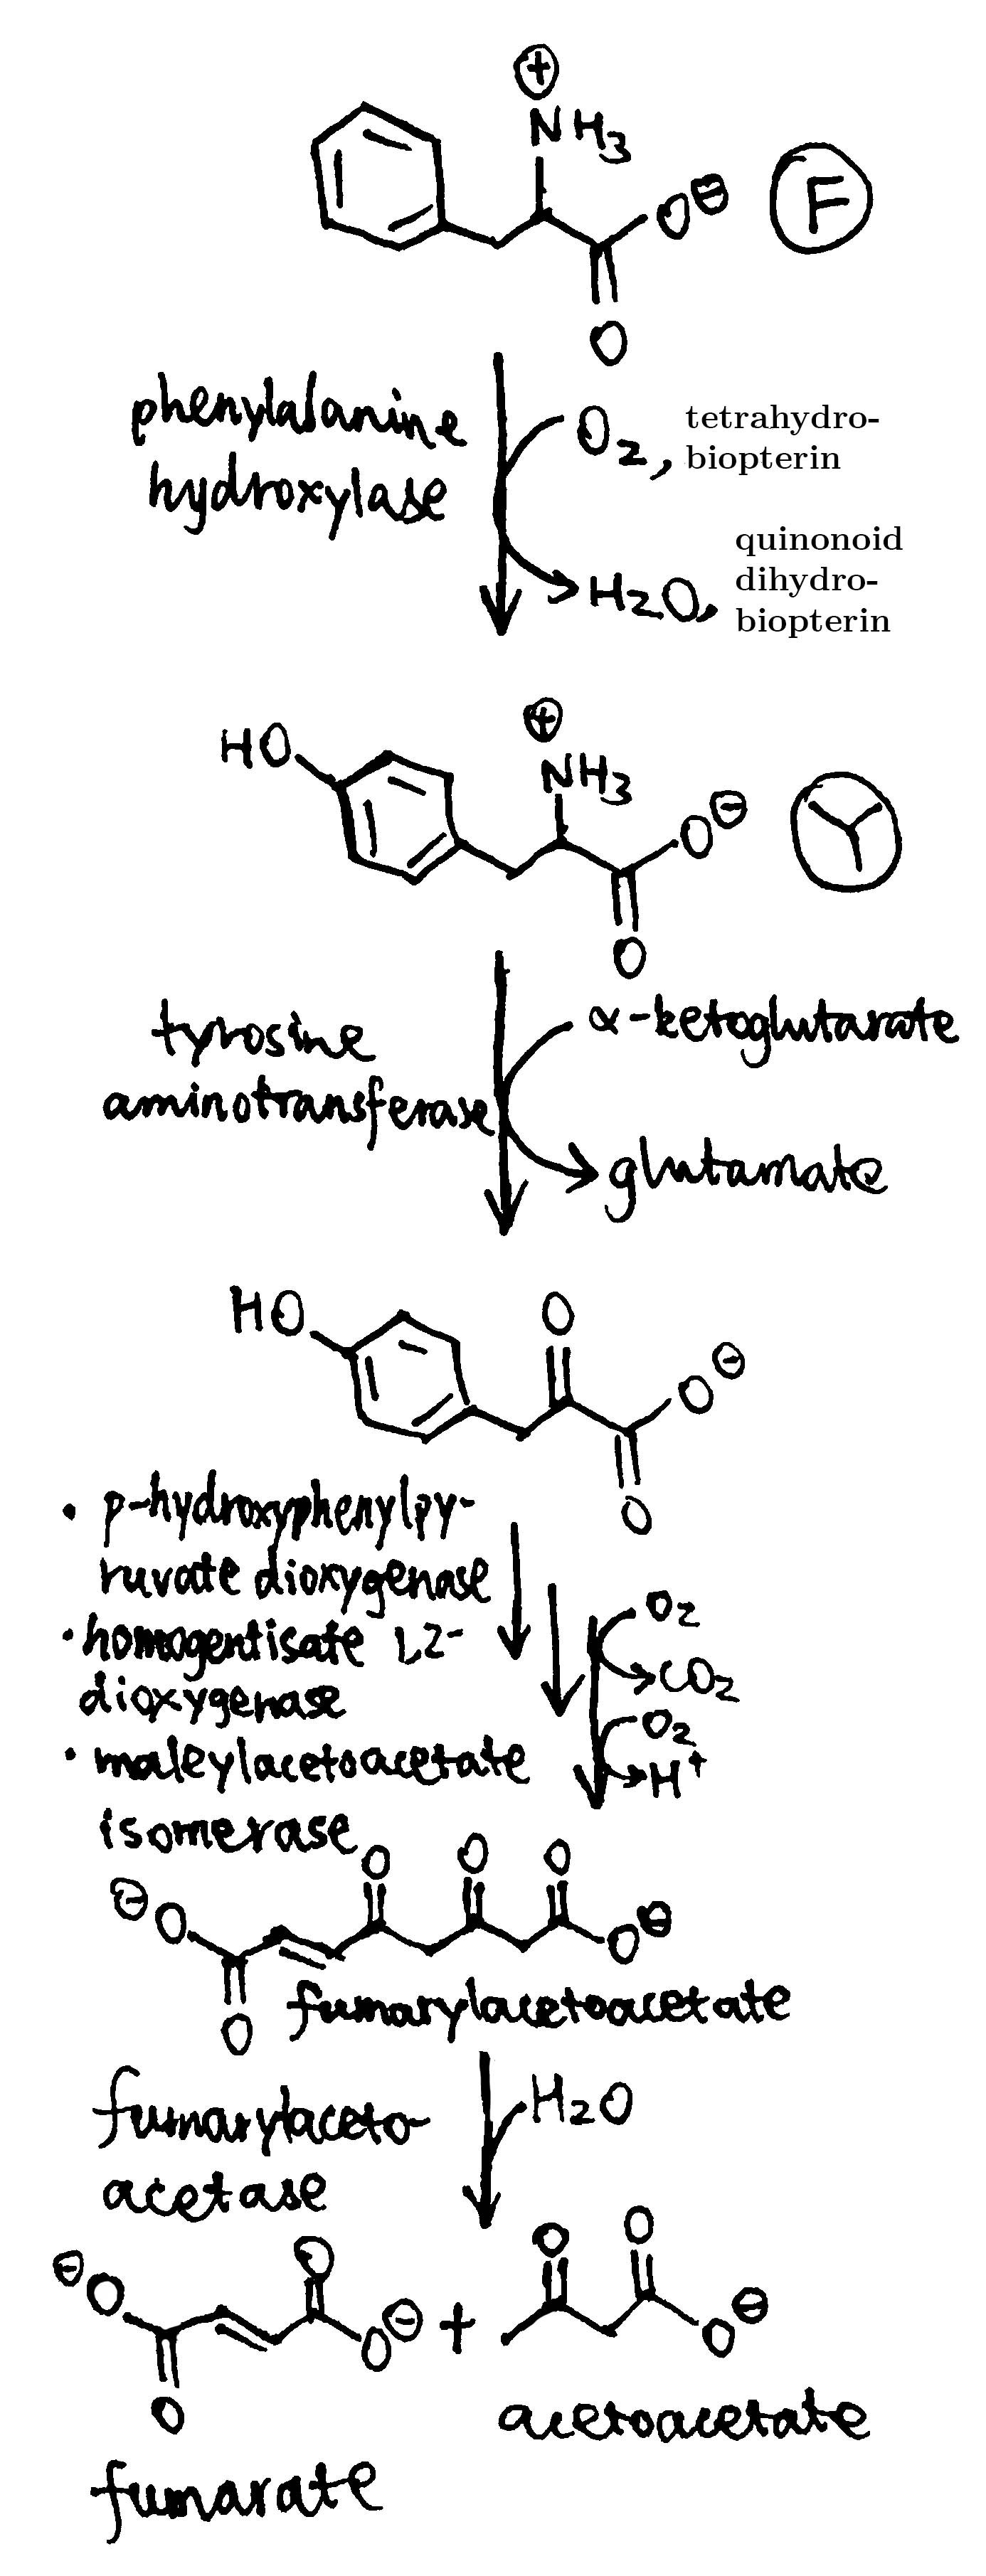 ⊕
NH₃
O⊖
F
O
phenylalanine
hydroxylase
O₂,
tetrahydro-
biopterin
H₂O,
quinonoid
dihydro-
biopterin
⊕
HO
NH₃
O⊖
Y
O
tyrosine
aminotransferase
α-ketoglutarate
glutamate
HO
O
O⊖
O
• p-hydroxyphenylpy-
ruvate dioxygenase
• homogentisate 1,2-
dioxygenase
• maleylacetoacetate
isomerase
O₂
CO₂
O₂
H⁺
O
O
O
⊖O
O⊖
O
fumarylacetoacetate
fumarylaceto-
acetase
H₂O
⊖O
O
O⊖
O
+
O
O
O⊖
fumarate
acetoacetate